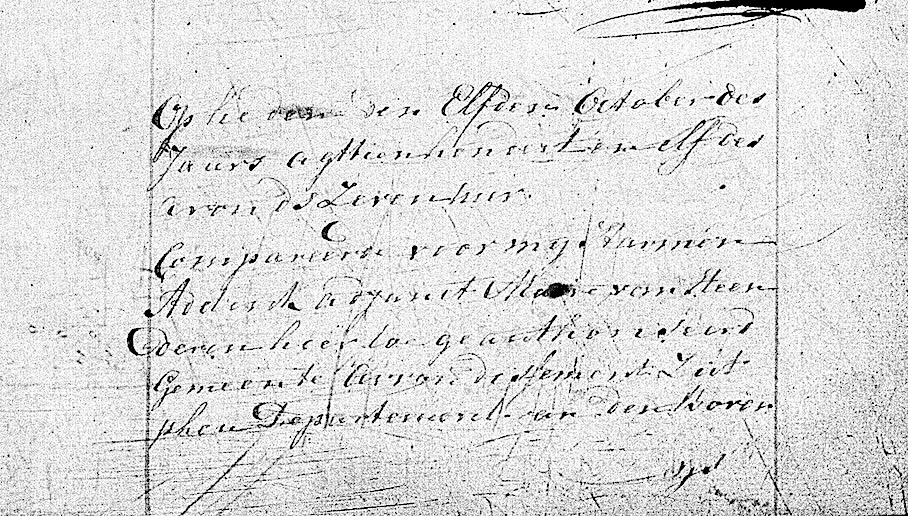 Op heden den Elfden October des
Jaars agttienhondert en elf des
avonds Zeven uur
Compareerde voor my Harmen
Addink adjunct Maire van Steen
deren hier toe geauthoriseerd
Gemeente Arrondissement Zut
phen Departement van den Boven
Yssel